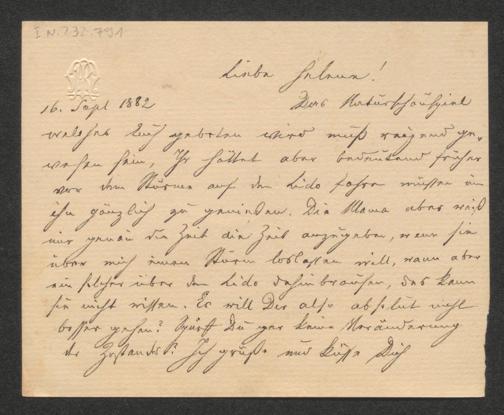 I.N. 232.791
Liebe Helene!
16. Sept 1882 Das Naturschauspiel
welches Euch geboten wird muß reizend ge-
wesen sein, Ihr hättet aber bedeutend früher
vor dem Sturme auf den Lido fahren müssen um
ihn gänzlich zu genießen. Die Mama aber weiß
nur genau die Zeit anzugeben, wenn sie
über mich einen Sturm loslassen will, wann aber
ein solcher über den Lido dahinbrauset, das kann
sie nicht wissen. Es will Dir also absolut nicht
besser gehen? Spürst Du gar keine Veränderung
des Zustandes? Ich grüße und küsse Dich